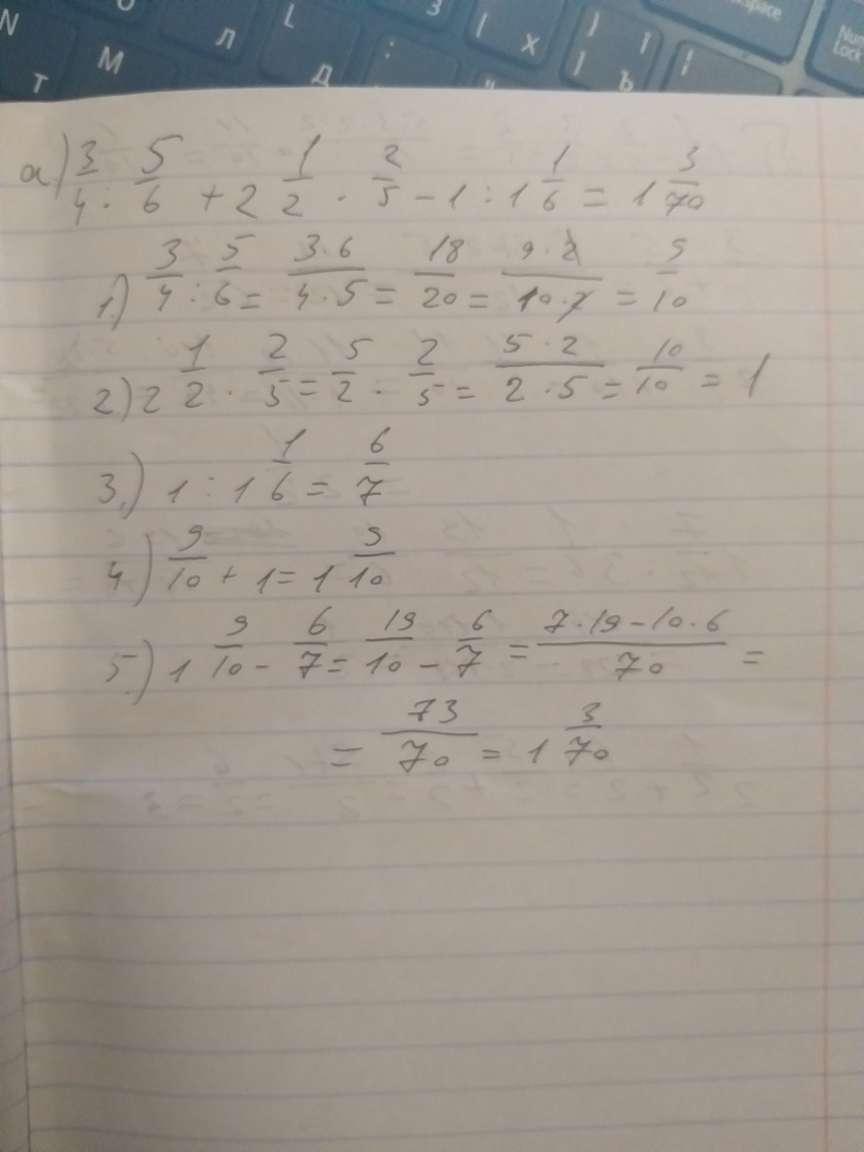 N О L З { } ] Backspace Num Lock
Т М Л Д : Х Ъ |
а) 3/4 : 5/6 + 2 1/2 · 2/5 - 1 : 1 1/6 = 1 3/70
1.) 3/4 : 5/6 = 3·6/4·5 = 18/20 = 9·2/10·2 = 9/10
2) 2 1/2 · 2/5 = 5/2 · 2/5 = 5·2/2·5 = 10/10 = 1
3.) 1 : 1 1/6 = 6/7
4) 9/10 + 1 = 1 9/10
5.) 1 9/10 - 6/7 = 19/10 - 6/7 = 7·19-10·6/70 =
= 73/70 = 1 3/70